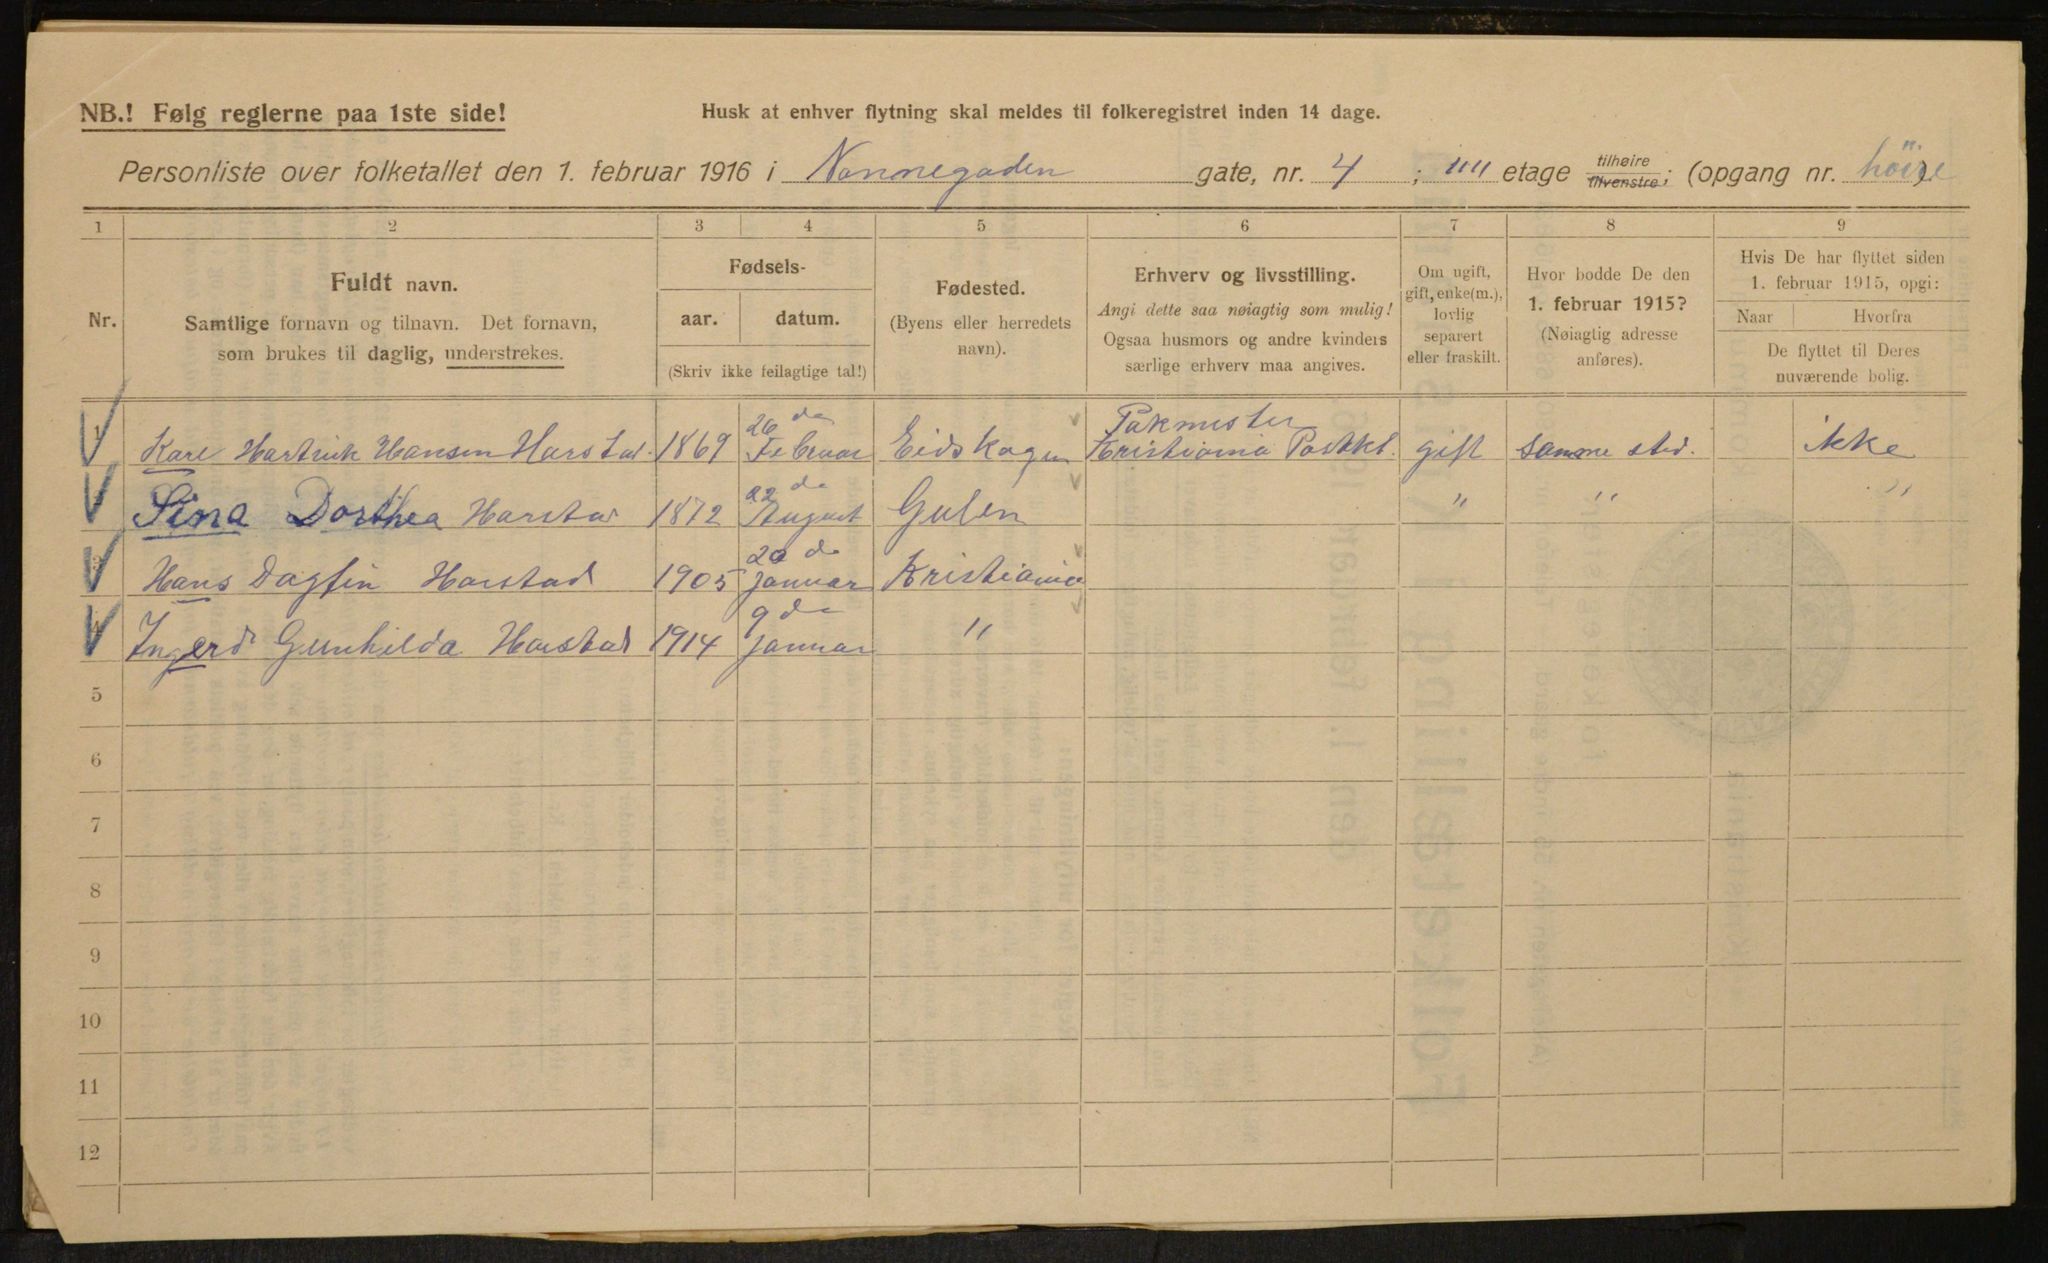 NB.! Følg reglerne paa 1ste side!
Husk at enhver flytning skal meldes til folkeregistret inden 14 dage.
Personliste over folketallet den 1. februar 1916 i Nannegaden gate, nr. 4 ; IIII etage tilhøire tilvenstre; (opgang nr. höire)
1 2 3 4 5 6 7 8 9
Nr.
Fuldt navn.
Samtlige fornavn og tilnavn. Det fornavn,
som brukes til daglig, understrekes.
Fødsels-
aar. datum.
(Skriv ikke feilagtige tal!)
Fødested.
(Byens eller herredets
navn).
Erhverv og livsstilling.
Angi dette saa nøiagtig som mulig!
Ogsaa husmors og andre kvinders
særlige erhverv maa angives.
Om ugift,
gift, enke(m.),
lovlig
separert
eller fraskilt.
Hvor bodde De den
1. februar 1915?
(Nøiagtig adresse
anføres).
Hvis De har flyttet siden
1. februar 1915, opgi:
Naar Hvorfra
De flyttet til Deres
nuværende bolig.
26 de Pakmester
1 Kare Hartvik Hansen Harstad. 1869 Februar Eidskogen Kristiania Postkt. gift samme sted. ikke
22 de
Sina Dorthea Harstad 1872 August Gulen " " "
20 de
3 Hans Dagfin Harstad 1905 Januar Kristiania
9 de
4 Ingerd Gunhilda Harstad 1914 Januar "
5
6
7
8
9
10
11
12